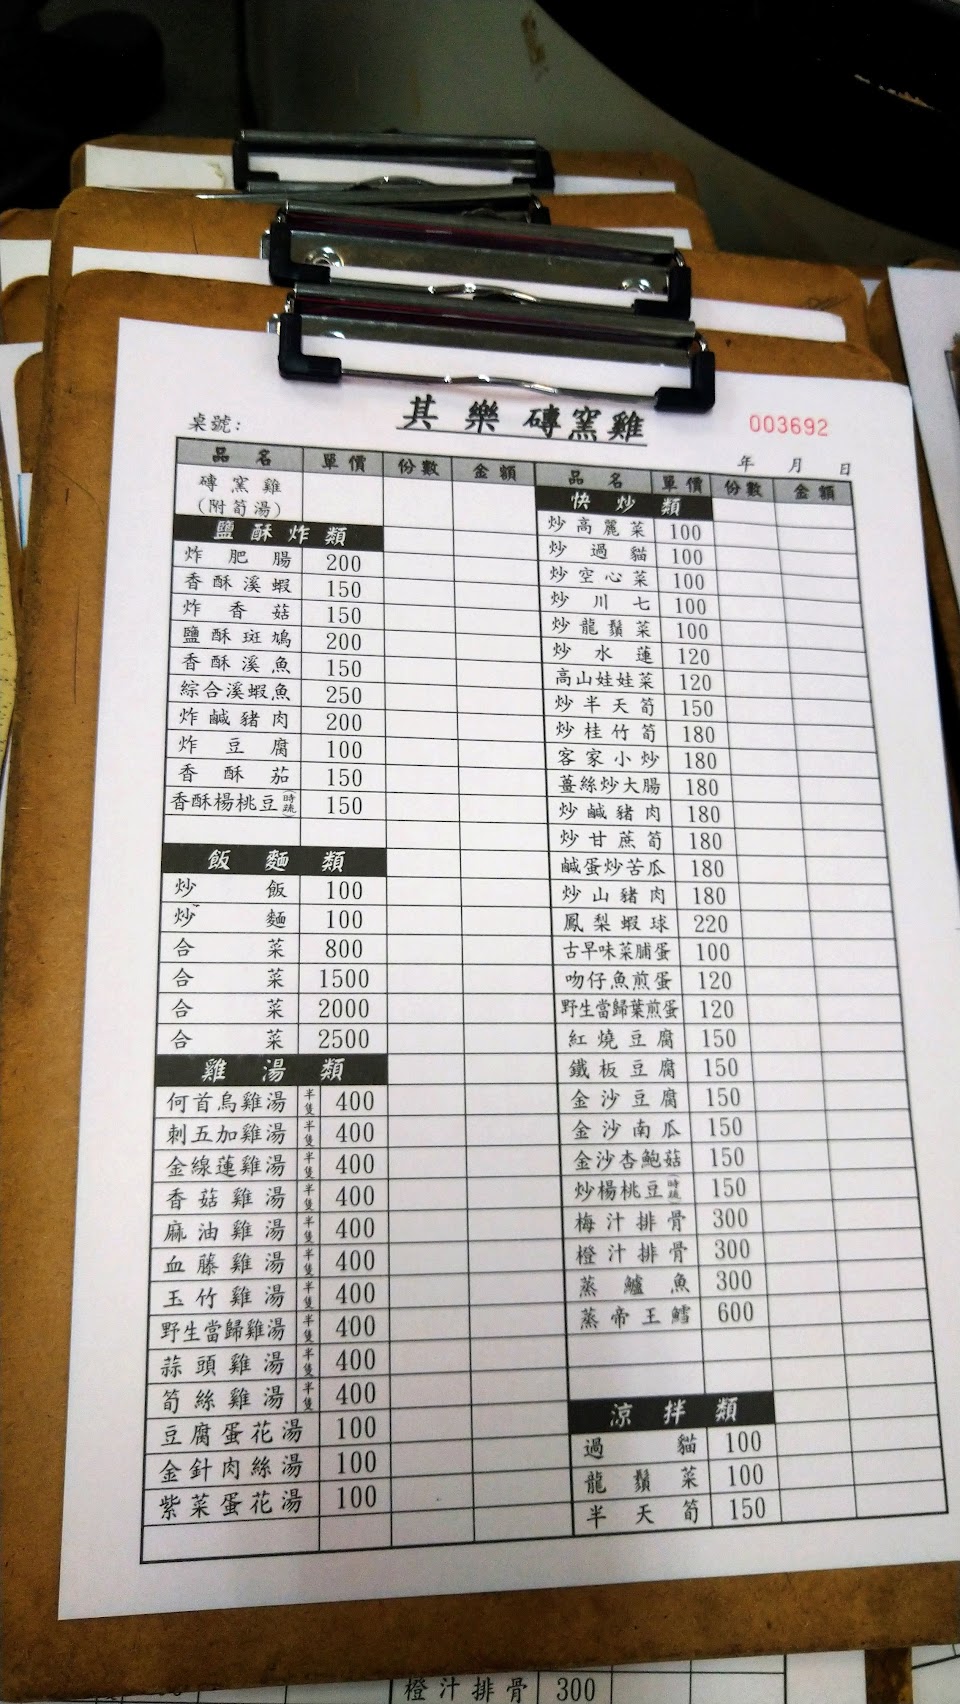 其樂磚窯雞
003692
桌號:
年 月 日
品名 單價 份數 金額
磚窯雞
(附荀湯)
鹽酥炸類
炸肥腸 200
香酥溪蝦 150
炸香菇 150
鹽酥斑鳩 200
香酥溪魚 150
綜合溪蝦魚 250
炸鹹豬肉 200
炸豆腐 100
香酥茄 150
香酥楊桃豆(時蔬) 150
飯麵類
炒飯 100
炒麵 100
合菜 800
合菜 1500
合菜 2000
合菜 2500
雞湯類
何首烏雞湯 半隻 400
刺五加雞湯 半隻 400
金線蓮雞湯 半隻 400
香菇雞湯 半隻 400
麻油雞湯 半隻 400
血藤雞湯 半隻 400
玉竹雞湯 半隻 400
野生當歸雞湯 半隻 400
蒜頭雞湯 半隻 400
筍絲雞湯 半隻 400
豆腐蛋花湯 100
金針肉絲湯 100
紫菜蛋花湯 100
品名 單價 份數 金額
快炒類
炒高麗菜 100
炒過貓 100
炒空心菜 100
炒川七 100
炒龍鬚菜 100
炒水蓮 120
高山娃娃菜 120
炒半天筍 150
炒桂竹筍 180
客家小炒 180
薑絲炒大腸 180
炒鹹豬肉 180
炒甘蔗筍 180
鹹蛋炒苦瓜 180
炒山豬肉 180
鳳梨蝦球 220
古早味菜脯蛋 100
吻仔魚煎蛋 120
野生當歸葉煎蛋 120
紅燒豆腐 150
鐵板豆腐 150
金沙豆腐 150
金沙南瓜 150
金沙杏鮑菇 150
炒楊桃豆(時蔬) 150
梅汁排骨 300
橙汁排骨 300
蒸鱸魚 300
蒸帝王鱈 600
涼拌類
過貓 100
龍鬚菜 100
半天筍 150
橙汁排骨 300